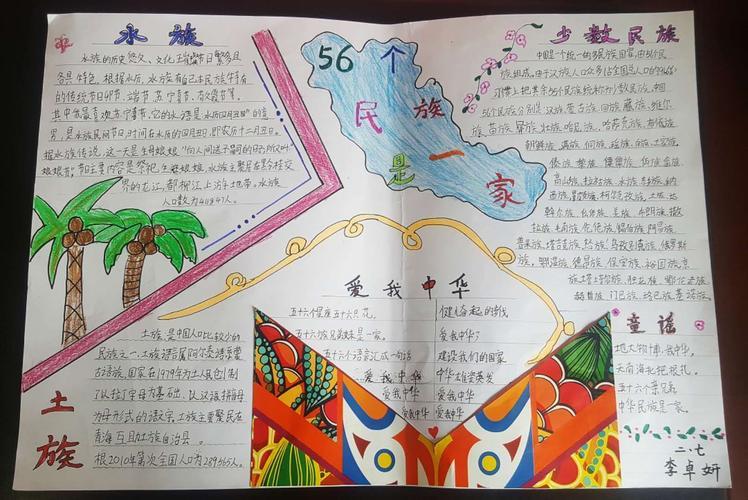 水族
水族的历史悠久、文化
各具特色。根据水历，水族有自己本民族特有
的传统节日卯节、端节、苏宁喜节、
据水族传说，这一天是生母娘娘"向人间送子嗣的日子所以叫"
娘娘节"节日主要内容是祭祀生母娘娘，水族主要居在黔桂交
界的龙江、都柳江上游地带。水族
人口数为411847人。
56个
民族
是一
家
少数民族
中国是个统一的多民族国家，由56个民
族组成。由于汉族人口众多
习惯上把其余55个民族统称为少数民族。中国
56个民族分别是：汉族、蒙古族、回族、藏族、维吾尔
族、苗族、彝族、壮族、
朝鲜族、满族、侗族、瑶族、白族、土家族、
傣族、黎族、傈僳族、佤族、畲族、
高山族、拉祜族、水族、东乡族、纳
西族、景颇族、柯尔克孜族、土族、达
斡尔族、仫佬族、羌族、布朗族、撒
拉族、毛南族、仡佬族、锡伯族、阿昌族、
普米族、塔吉克族、怒族、乌孜别克族、俄罗斯
族、鄂温克族、德昂族、保安族、裕固族、京
族、塔塔尔族、独龙族、鄂伦春族
赫哲族、门巴族、珞巴族、基诺族。
爱我中华
五十六个星座五十六只花，
五十六族兄弟姐妹是一家。
五十六个语言汇成一句话
爱我中华
爱我中华
爱我中华
健儿奋起的步伐
爱我中华
建设我们的国家
中华雄姿英发
爱我中华
爱我中华
土族
土族是中国人口比较少的
民族之一，土族语言属阿尔泰语系蒙
古语族，国家在1979年为土人民创制
了以拉丁字母为基础，以汉语拼音
为字母形式的语文字，土族主要聚居在
青海互助土族自治县。
根2010年第六次全国人口为289565人。
童谣
地大物博我中华，
云南海北把根扎。
五十六个亲兄弟
中华民族是一家。
二.七
李卓妍